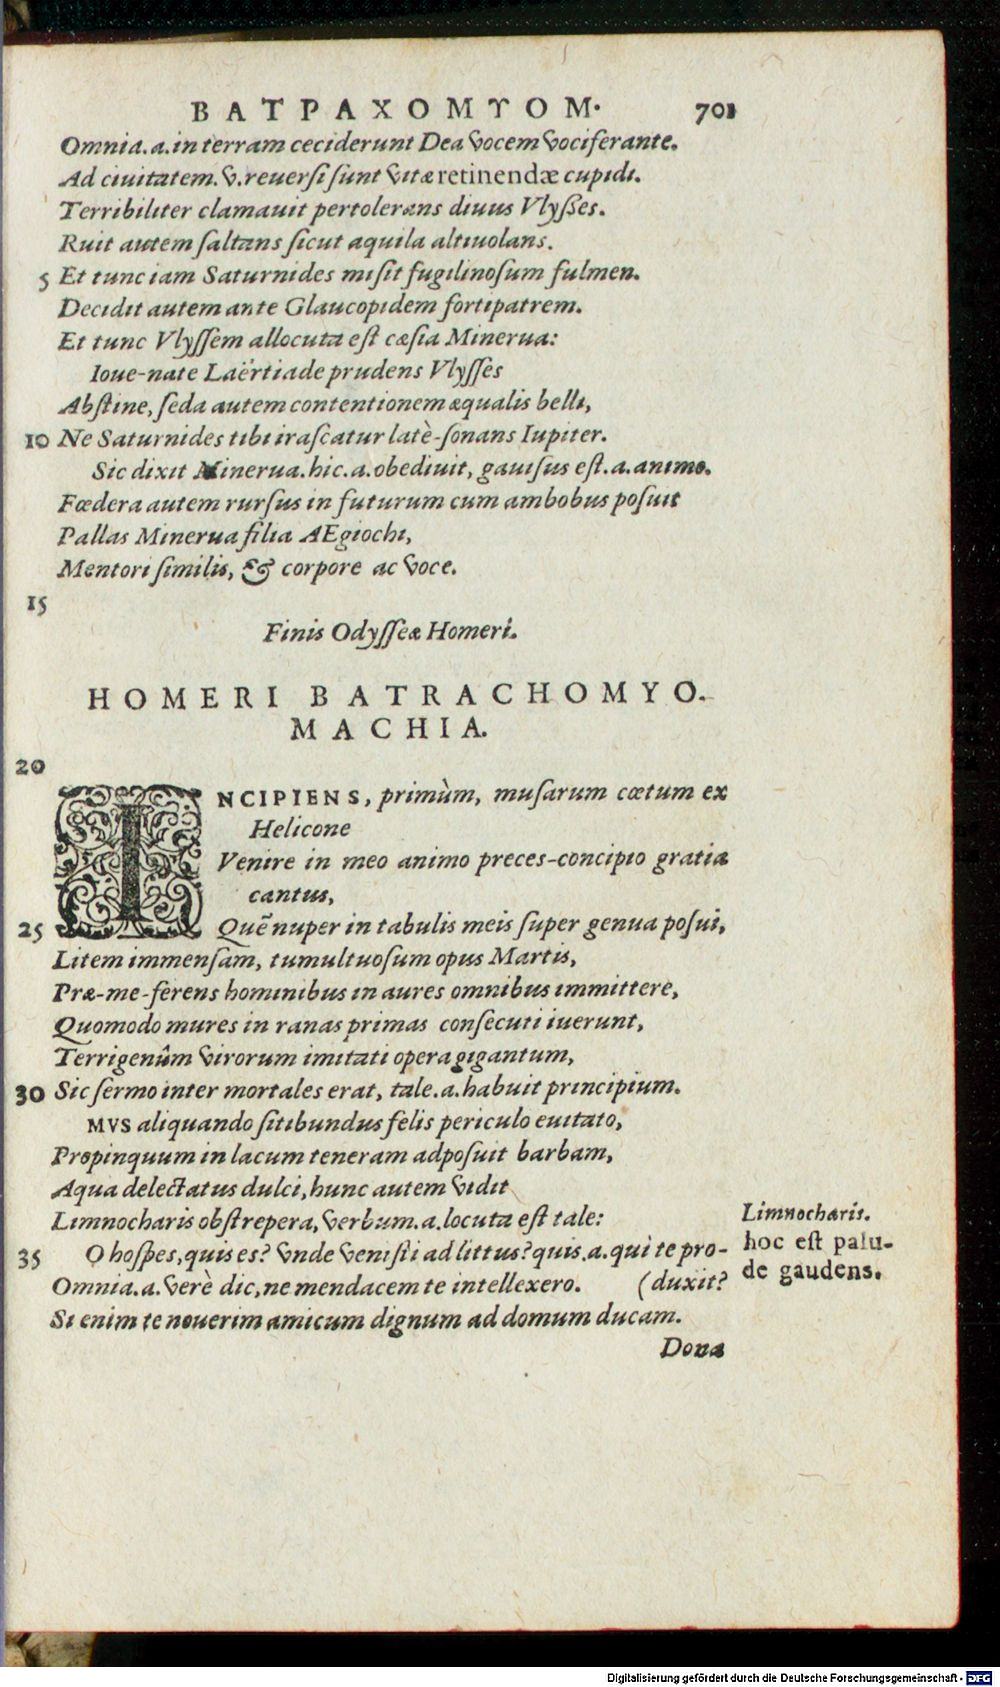 ΒΑΤΡΑΧΟΜΥΟΜ. 701
Omnia.a.in terram ceciderunt Dea vocem vociferante.
Ad ciuitatem.v.reuersi sunt vitæ retinendæ cupidi.
Terribiliter clamauit pertolerans diuus Vlysses.
Ruit autem saltans sicut aquila altiuolans.
5 Et tunc iam Saturnides misit fugilinosum fulmen.
Decidit autem ante Glaucopidem fortipatrem.
Et tunc Vlyssem allocuta est cæsia Minerua:
Ioue-nate Laërtiade prudens Vlysses
Abstine, seda autem contentionem æqualis belli,
10 Ne Saturnides tibi irascatur latè-sonans Iupiter.
Sic dixit Minerua.hic.a.obediuit, gauisus est.a.animo.
Fœdera autem rursus in futurum cum ambobus posuit
Pallas Minerua filia AEgiochi,
Mentori similis, & corpore ac voce.
15
Finis Odysseæ Homeri.
HOMERI BATRACHOMYO-
MACHIA.
20
INCIPIENS, primùm, musarum cœtum ex
Helicone
Venire in meo animo preces-concipio gratia
cantus,
25 Quē nuper in tabulis meis super genua posui,
Litem immensam, tumultuosum opus Martis,
Præ-me-ferens hominibus in aures omnibus immittere,
Quomodo mures in ranas primas consecuti iuerunt,
Terrigenûm virorum imitati opera gigantum,
30 Sic sermo inter mortales erat, tale.a.habuit principium.
MVS aliquando sitibundus felis periculo euitato,
Propinquum in lacum teneram adposuit barbam,
Aqua delectatus dulci, hunc autem vidit
Limnocharis obstrepera, verbum.a.locuta est tale:
35 O hospes, quis es? vnde venisti ad littus? quis.a.qui te pro-
Omnia.a.verè dic, ne mendacem te intellexero. (duxit?
Si enim te nouerim amicum dignum ad domum ducam.
Dona
Limnocharis.
hoc est palu-
de gaudens.
Digitalisierung gefördert durch die Deutsche Forschungsgemeinschaft - DFG